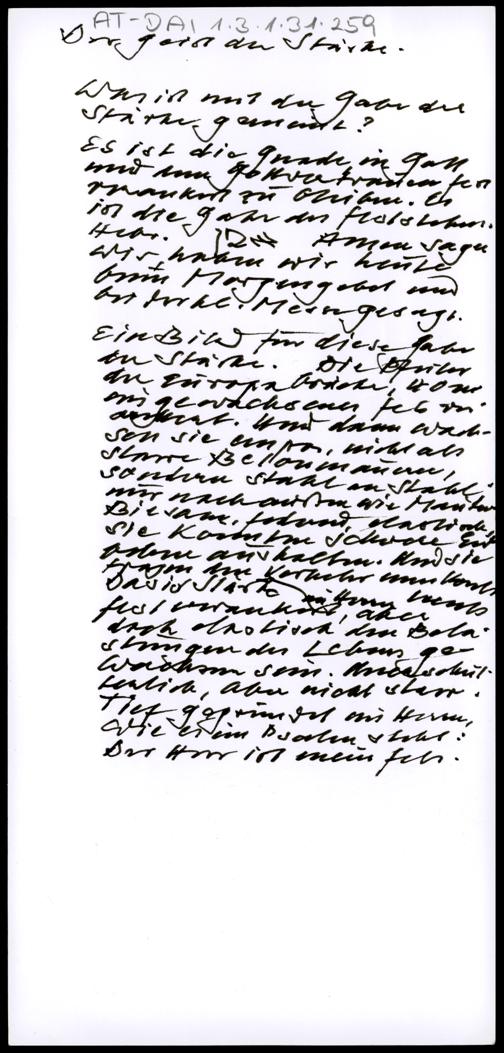 AT-DAI 1.3.1.31.259
Der Geist der Stärke.
Was ist mit der Gabe der
Stärke gemeint?
Es ist die Gnade, in Gott
und dem Gottvertrauen fest
verankert zu bleiben. Es
ist die Gabe des Felslebens.
Hebr. Amen sagen
wir, haben wir heute
beim Morgengebet und
bei der hl. Messe gesagt.
Ein Bild für diese Gabe
der Stärke. Die Pfeiler
der Europabrücke, 
im gewachsenen Fels ver-
ankert. Und dann wach-
sen sie empor, nicht als
starre Betonmauern,
sondern Stahl an Stahl,
nur nach außen wie Mauern
Biegsam, federnd, elastisch.
Sie können schwere Erd-
beben aushalten. Und sie
tragen den Verkehr
Das ist Stärke, im Herrn
fest verankert, aber
doch elastisch den Bela-
stungen des Lebens ge-
wachsen sein. Unerschüt-
terlich, aber nicht starr.
Tief gegründet im Herrn,
wie es im Psalm steht:
Der Herr ist mein Fels.